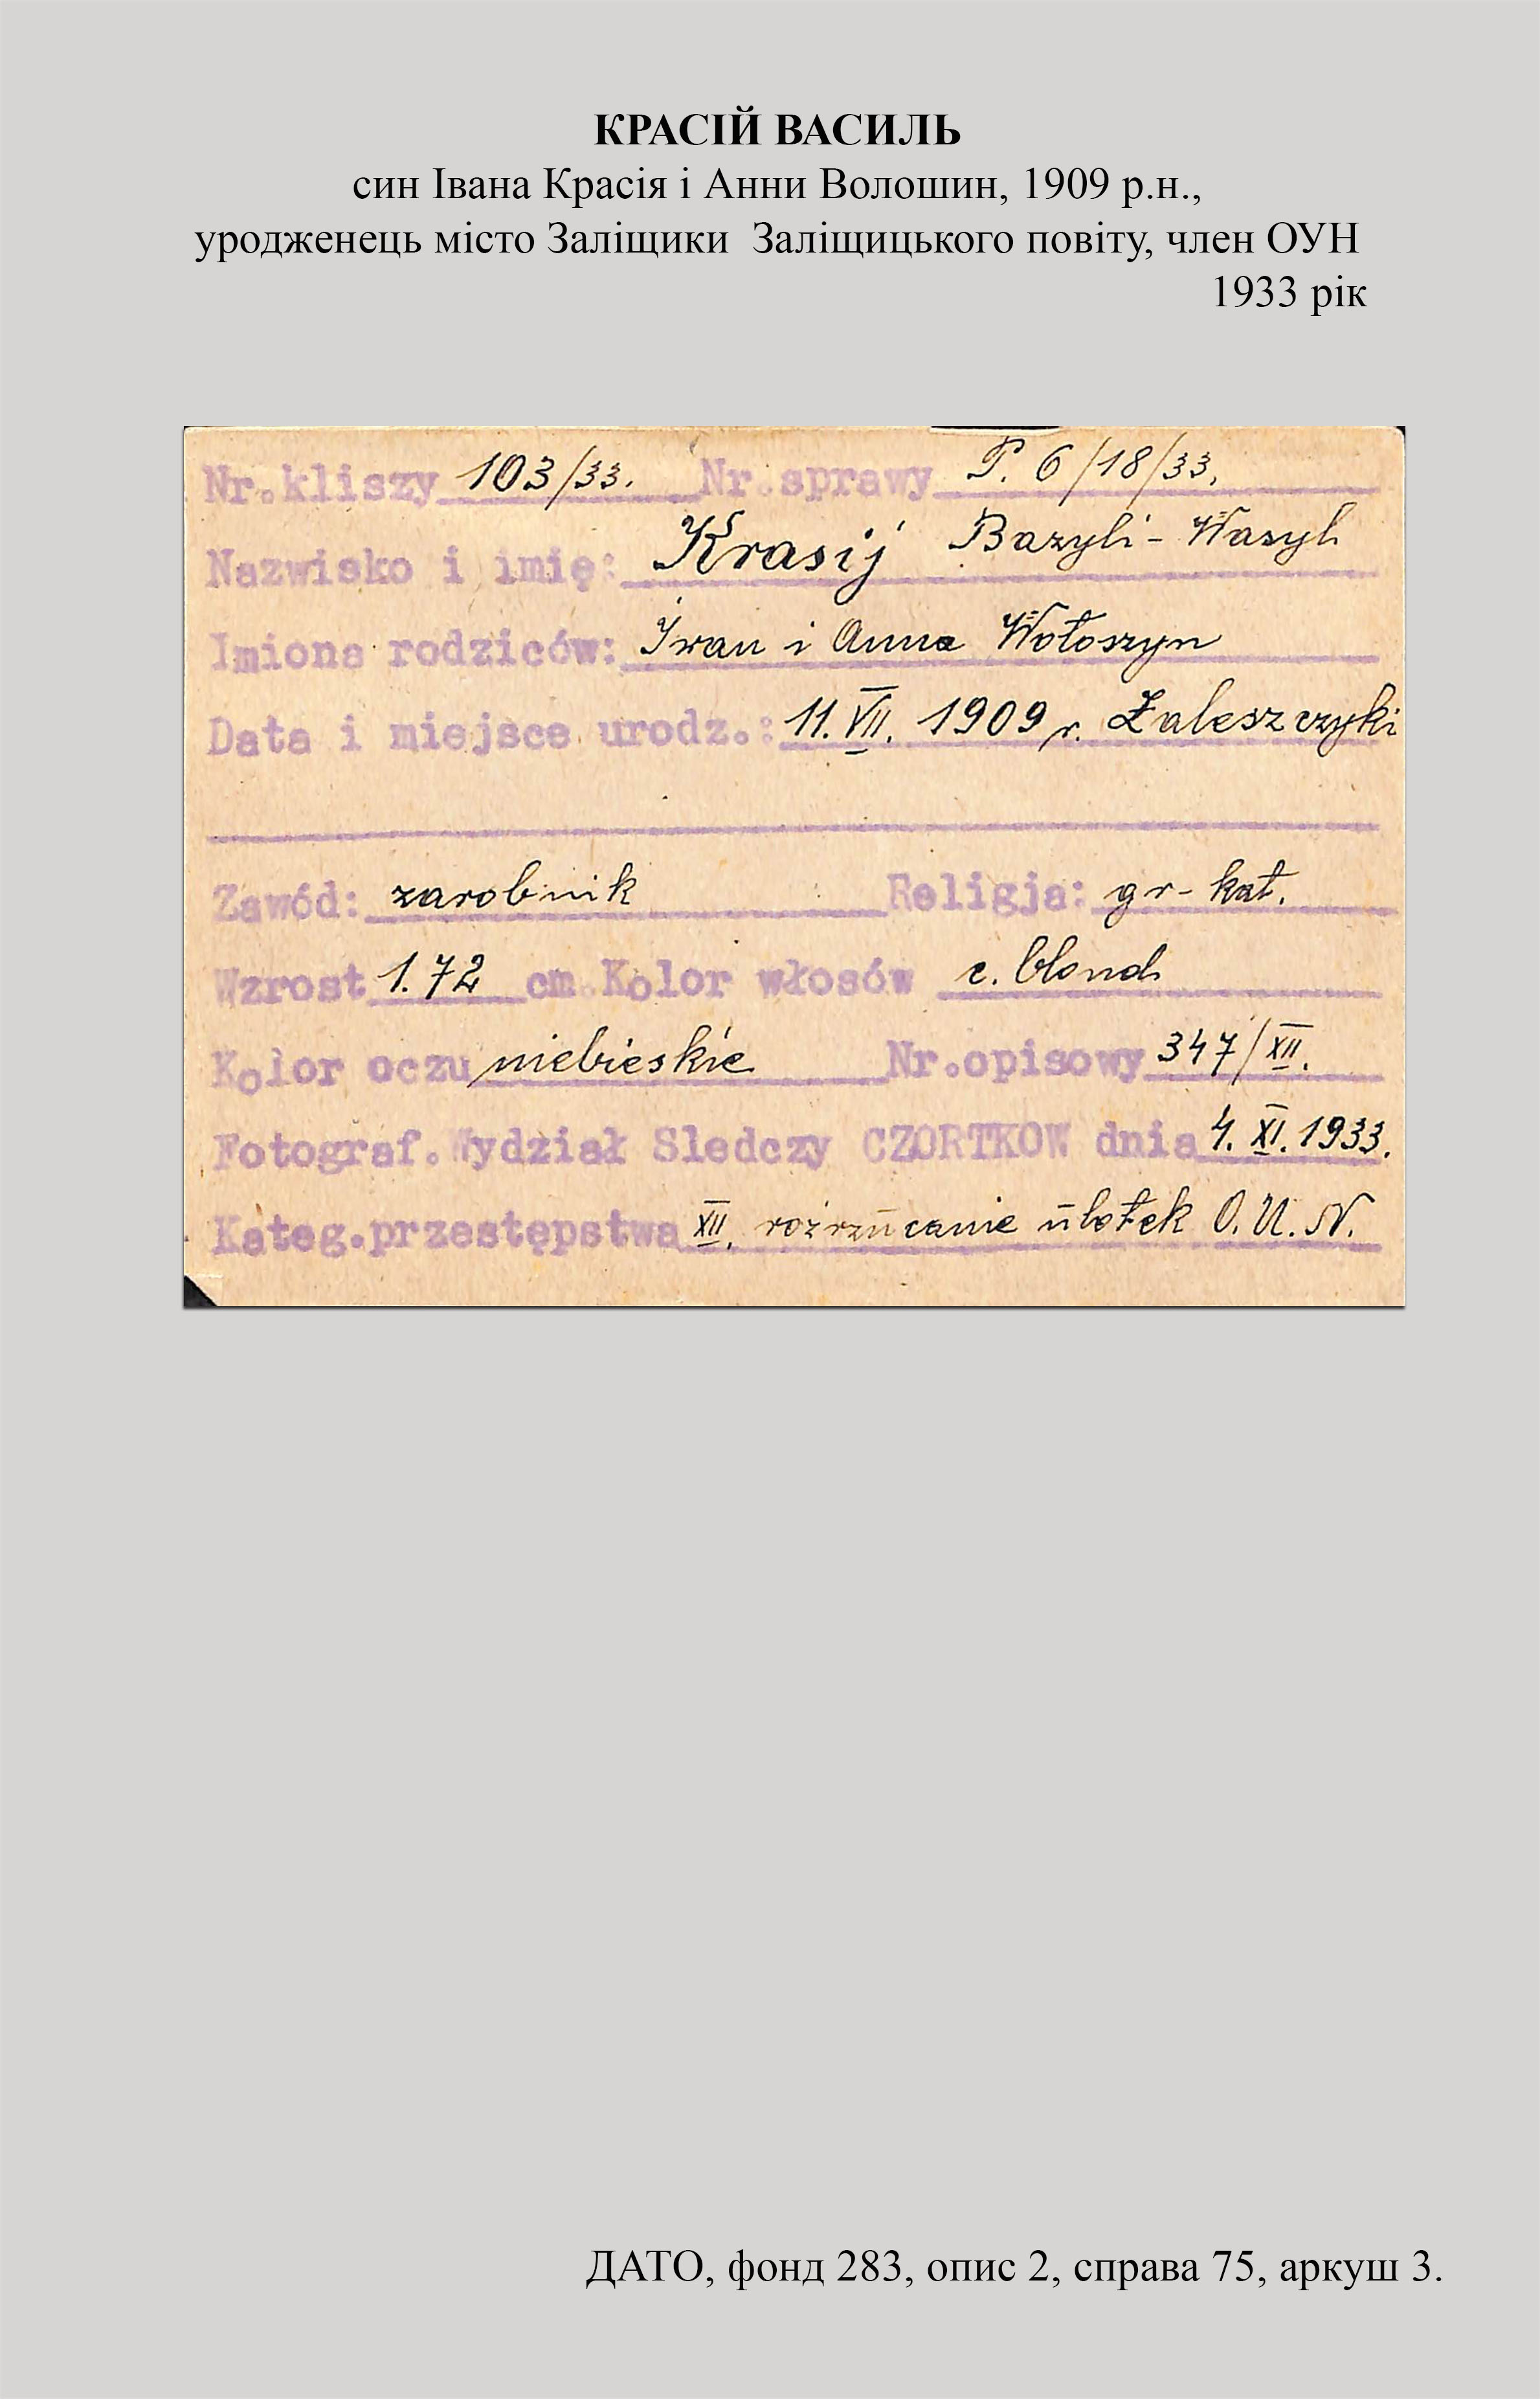 КРАСІЙ ВАСИЛЬ
син Івана Красія і Анни Волошин, 1909 р.н.,
уродженець місто Заліщики Заліщицького повіту, член ОУН
1933 рік
Nr.kliszy 103/33. Nr.sprawy P. 6/18/33.
Nazwisko i imię: Krasij Bazyli - Wasyl
Imiona rodziców: Iwan i Anna Wołoszyn
Data i miejsce urodz.: 11. VII. 1909 r. Zaleszczyki
Zawód: zarobnik Religja: gr-kat.
Wzrost 1.72 cm. Kolor włosów c. blond
Kolor oczu niebieskie Nr.opisowy 347/XII.
Fotograf. Wydział Sledczy CZORTKOW dnia 4. XI. 1933.
Kateg.przestępstwa XII. rozrzucanie ulotek O.U.N.
ДАТО, фонд 283, опис 2, справа 75, аркуш 3.